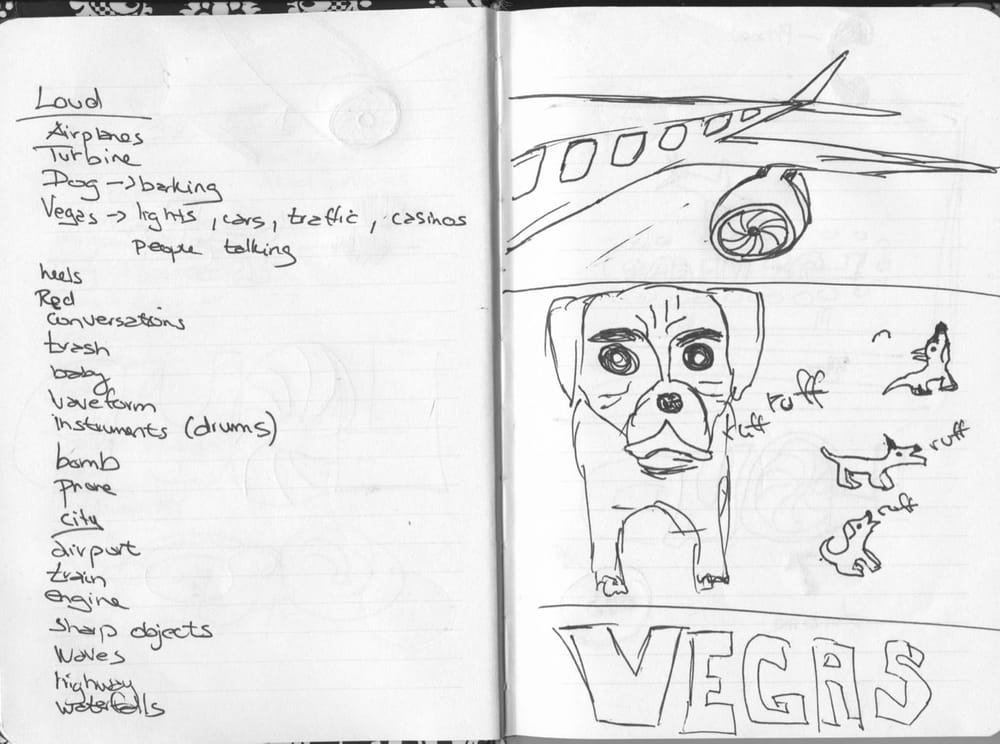 Loud
Airplanes
Turbine
Dog -> barking
Vegas -> lights, cars, traffic, casinos
people talking
heels
Red
conversations
trash
baby
waveform
instruments (drums)
bomb
phone
city
airport
train
engine
sharp objects
waves
highway
waterfalls
ruff
ruff
ruff
ruff
VEGAS